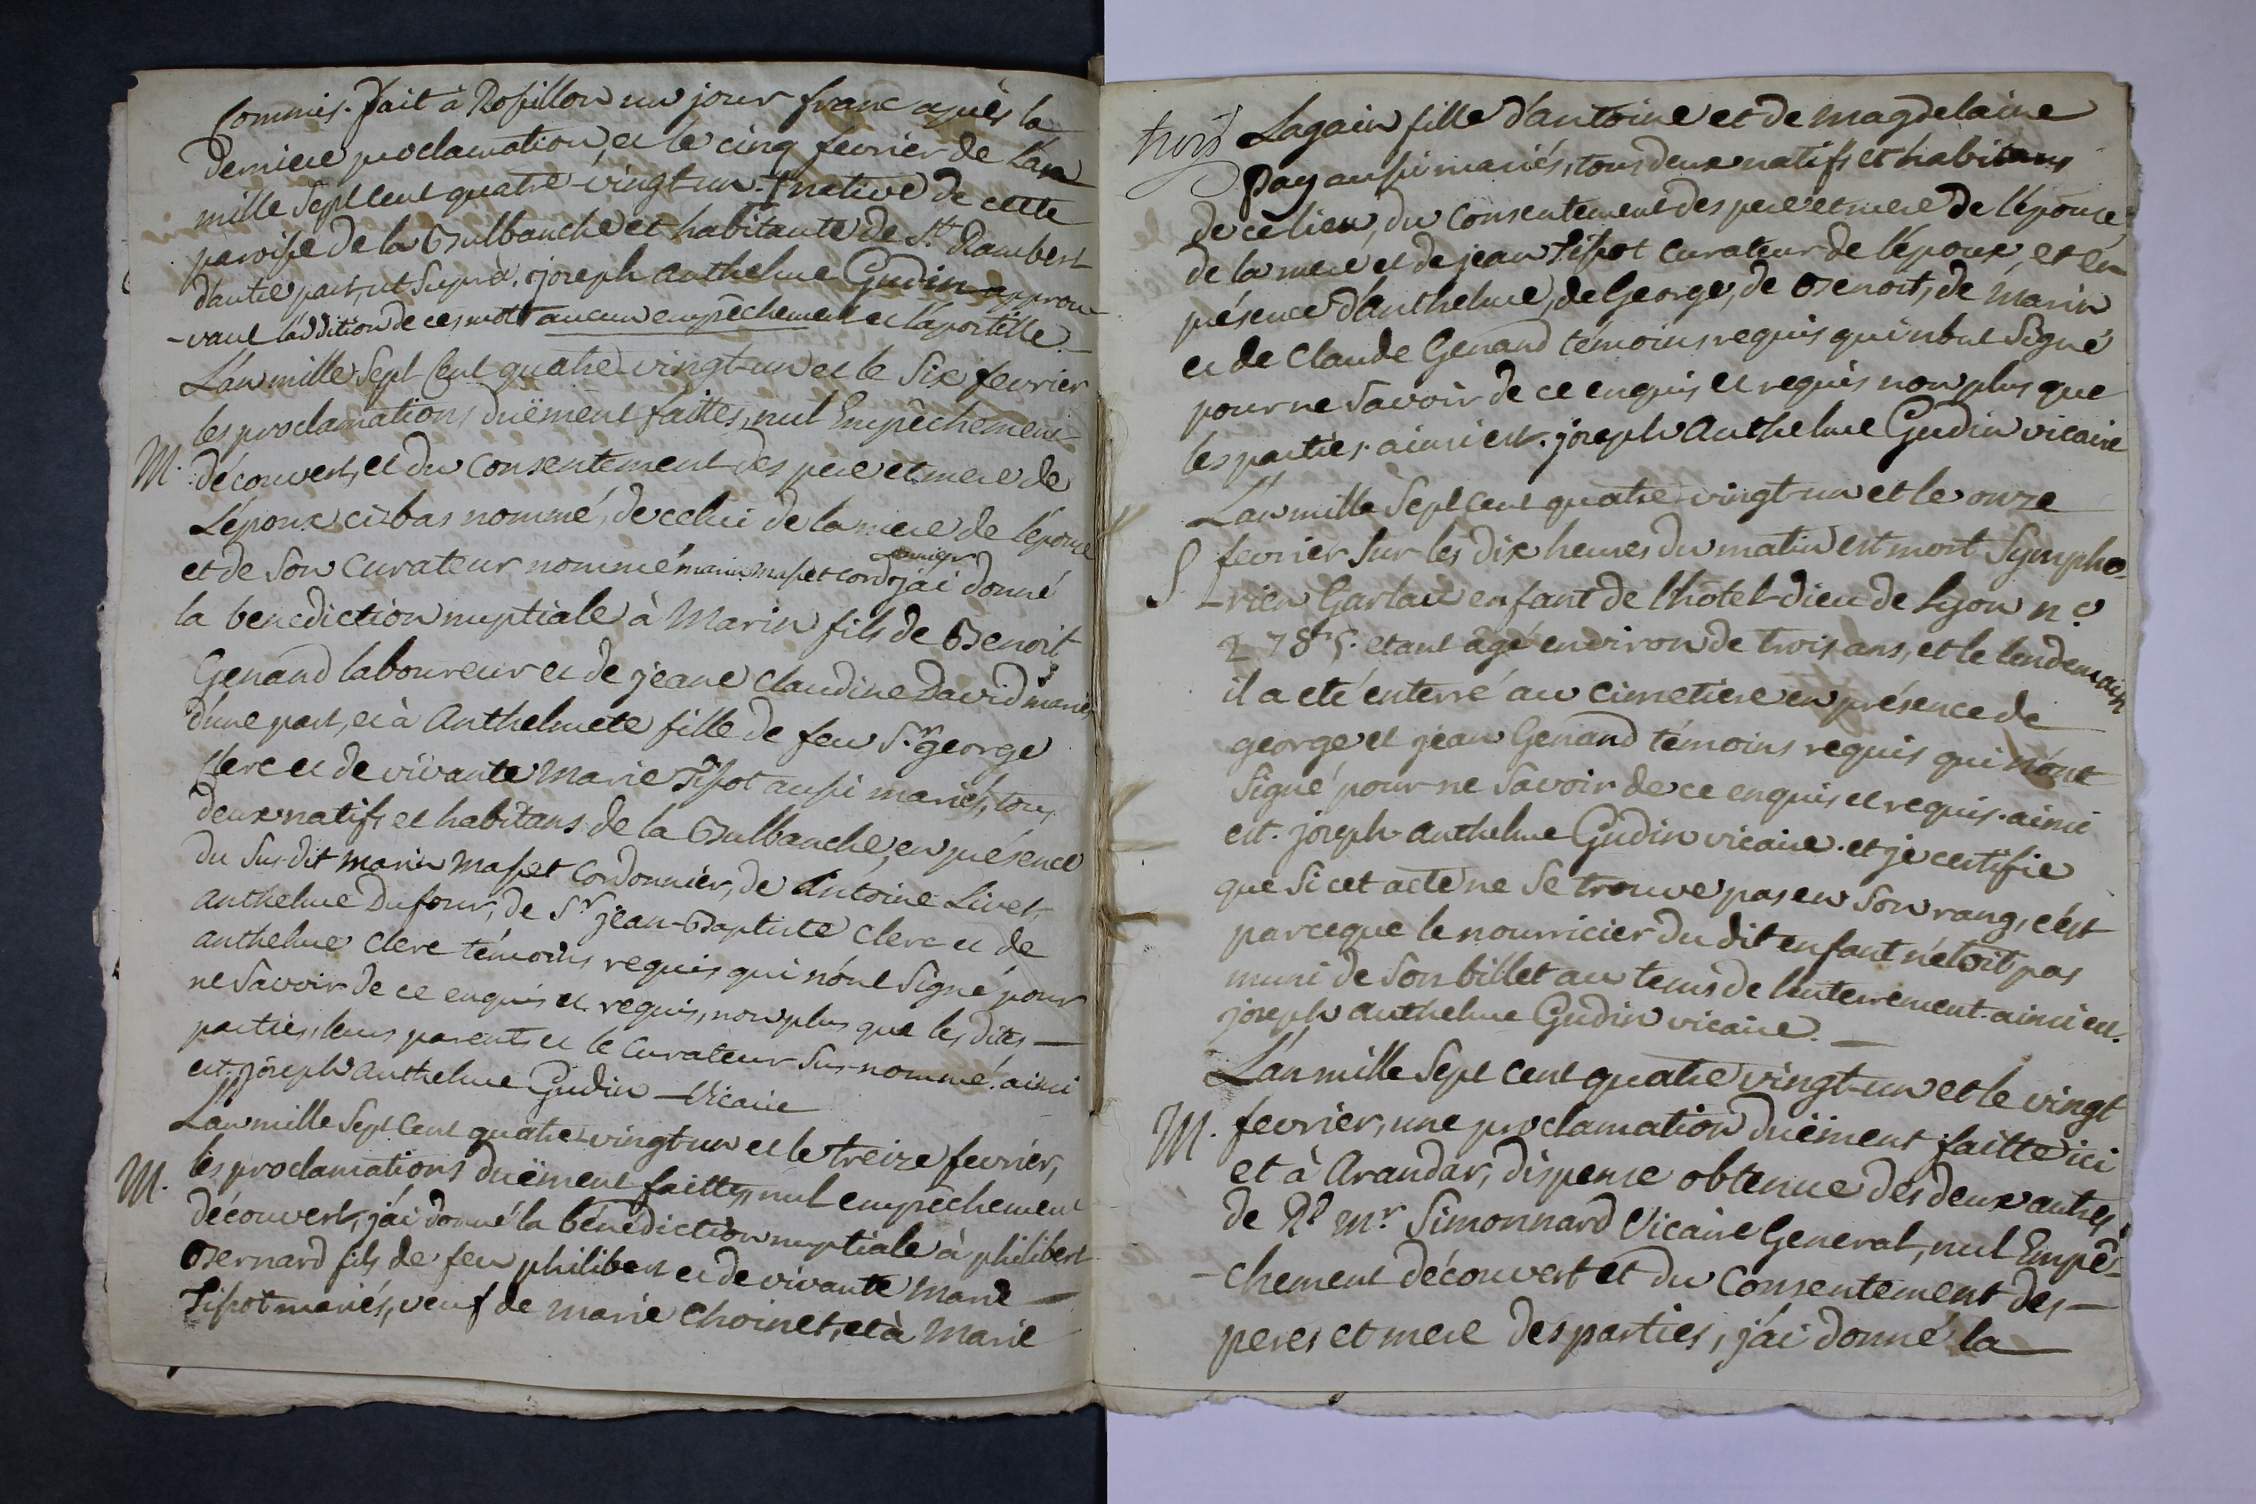 Commis. fait à Rossillon un jour franc après la
derniere proclamation, et le cinq fevrier de l'an
mille sept cent quatre-vingt-un. † native de cette
paroisse de la Bulbanche et habitante de St Rambert
d'autre part, ut suprà. joseph anthelme Gudin approu-
-vant l'addition de ces mots aucun empêchement et l'apostille.
L'an mille sept cent quatre vingt-un et le six fevrier
les proclamations duëment faittes, nul Empêchement
M. découvert, et du consentement des pere et mere de
L'époux ci-bas nommé, de celui de la mere de l'épouse
et de son curateur nommé marin masset cordonnier j'ai donné
la benediction nuptiale à Marin fils de Benoit
Genand laboureur et de jeane claudine David mariés
d'une part, et à Anthelmete fille de feu Sr. george
Clerc et de vivante Marie Tissot aussi mariés, tous
deux natifs et habitans de la Bulbanche, en présence
du sus-dit marin masset cordonnier, de Antoine Livet,
anthelme Dufour, de Sr jean-Baptiste Clerc et de
anthelme Clerc témoins requis qui n'ont signé pour
ne savoir de ce enquis et requis, non plus que les dites —
parties, leurs parents et le curateur sus-nommé. ainsi
est. joseph anthelme Gudin — Vicaire
L'an mille sept cent quatre-vingt-un et le treize fevrier,
M. les proclamations duëment faittes, nul empêchement
découvert, j'ai donné la bénédiction nuptiale à philibert
Bernard fils de feu philibert et de vivante Marie —
Tissot mariés, veuf de marie Choinet, et à Marie
trois Lagain fille d'antoine et de magdelaine
Pay aussi mariés, tous deux natifs et habitans
de ce lieu, du consentement des pere et mere de l'épouse,
de la mere et de jean Tissot curateur de l'époux, et en
présence d'anthelme, de George, de Benoit, de Marin
et de Claude Genand témoins requis qui n'ont signé
pour ne savoir de ce enquis et requis non plus que
les parties. ainsi est. joseph Anthelme Gudin vicaire
L'an mille sept cent quatre-vingt-un et le onze
S fevrier sur les dix heures du matin est mort Sympho-
-rien Garlan enfant de l'hôtel-dieu de Lyon n.o
etant âgé environ de trois ans, et le lendemain
il a eté enterré au cimetiere en présence de
george et jean Genand témoins requis qui n'ont
signé pour ne savoir de ce enquis et requis. ainsi
est. joseph anthelme Gudin vicaire. et je certifie
que si cet acte ne se trouve pas en son rang, c'est
parceque le nourricier du dit enfant n'étoit pas
muni de son billet au tems de l'enterrement. ainsi est.
joseph anthelme Gudin vicaire. —
L'an mille sept cent quatre vingt-un et le vingt
M. fevrier, une proclamation duëment faitte ici
et à Arandas, dispense obtenue des deux autres
de Rd Mr Simonnard Vicaire General, nul Empê-
-chement découvert et du consentement des —
peres et mere des parties, j'ai donné la